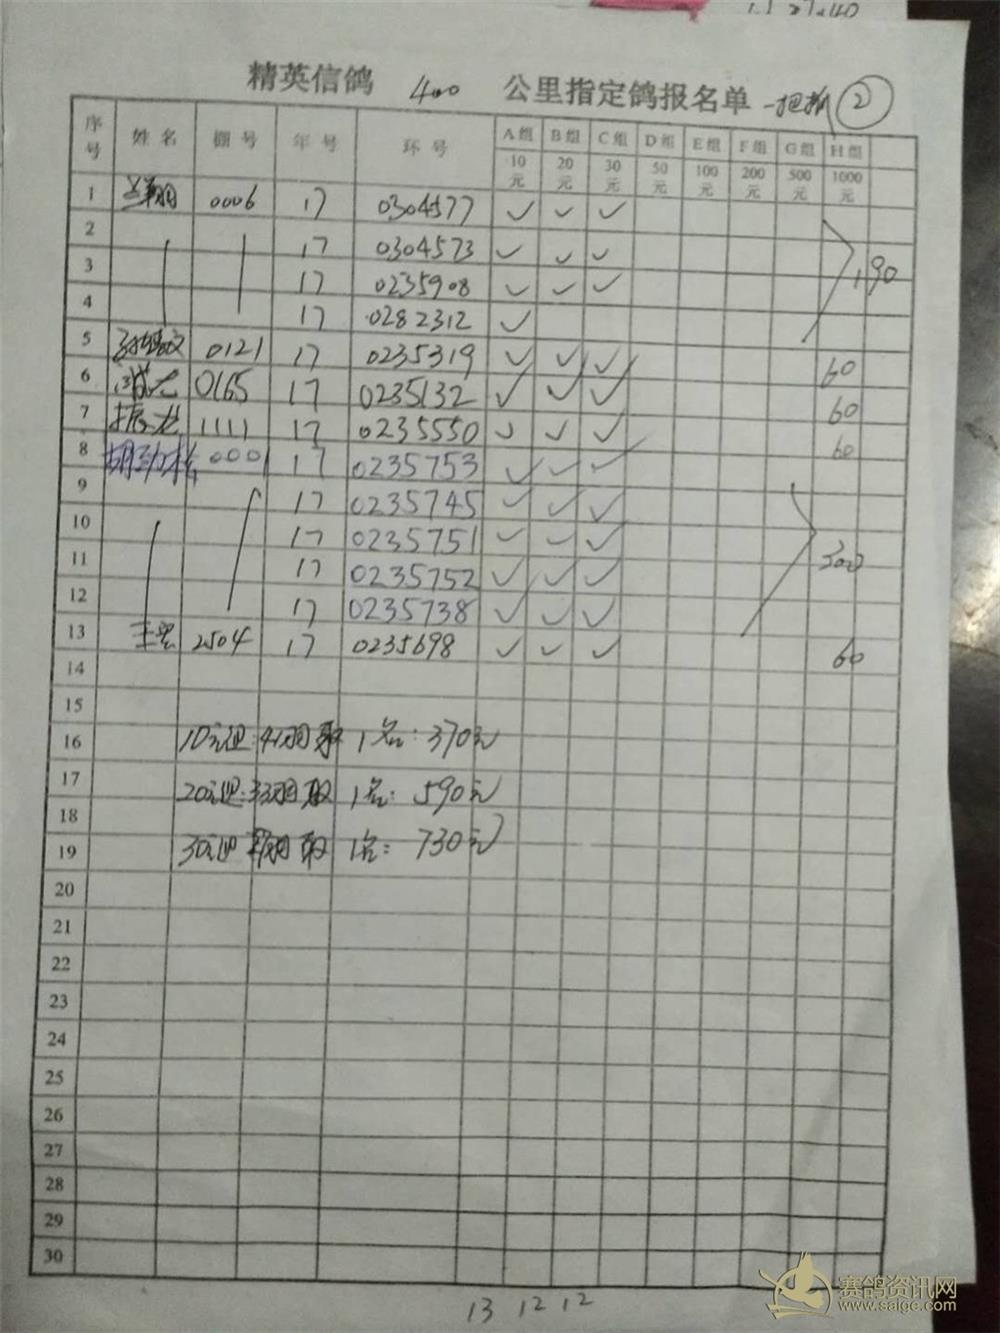 精英信鸽 400 公里指定鸽报名单 ②
序号 姓名 棚号 年号 环号 A组 B组 C组 D组 E组 F组 G组 H组
10元 20元 30元 50元 100元 200元 500元 1000元
1 0006 17 0304577 ✓ ✓ ✓
2 17 0304573 ✓ ✓ ✓ 190
3 17 0235908 ✓ ✓ ✓
4 17 0282312 ✓
5 0121 17 0235319 ✓ ✓ ✓ 60
6 0165 17 0235132 ✓ ✓ ✓ 60
7 振龙 1111 17 0235550 ✓ ✓ ✓ 60
8 0001 17 0235753 ✓ ✓ ✓
9 17 0235745 ✓ ✓ ✓
10 17 0235751 ✓ ✓ ✓ 300
11 17 0235752 ✓ ✓ ✓
12 17 0235738 ✓ ✓ ✓
13 2504 17 0235698 ✓ ✓ ✓ 60
14
15
16 10元组:41羽取1名:370元
17 20元组:33羽取1名:590元
18
19 30元组 羽取1名:730元
20
21
22
23
24
25
26
27
28
29
30
13 12 12
赛鸽资讯网
www.saige.com